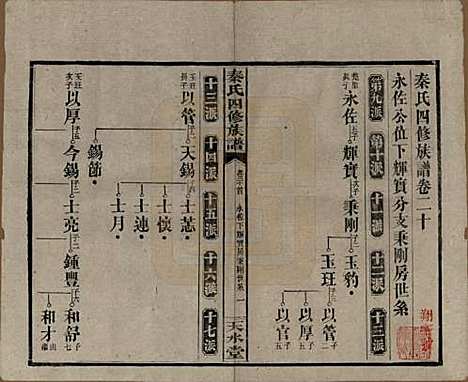 秦氏四修族譜卷二十
永佐公位下輝寶分支秉剛房世系
第九派 第十派 十一派 十二派 十三派
永佐 輝寶 秉剛 玉豹
玉玨
以管 子二
以厚 子二
以官 子二
秦氏四修族譜
天水堂
十三派 十四派 十五派 十六派 十七派
玉玨長子
以管 天錫 士慤
士懷
士連
士月
玉玨次子
以厚 今錫 士亮 鍾豐 和舒 子七
和才
錫節